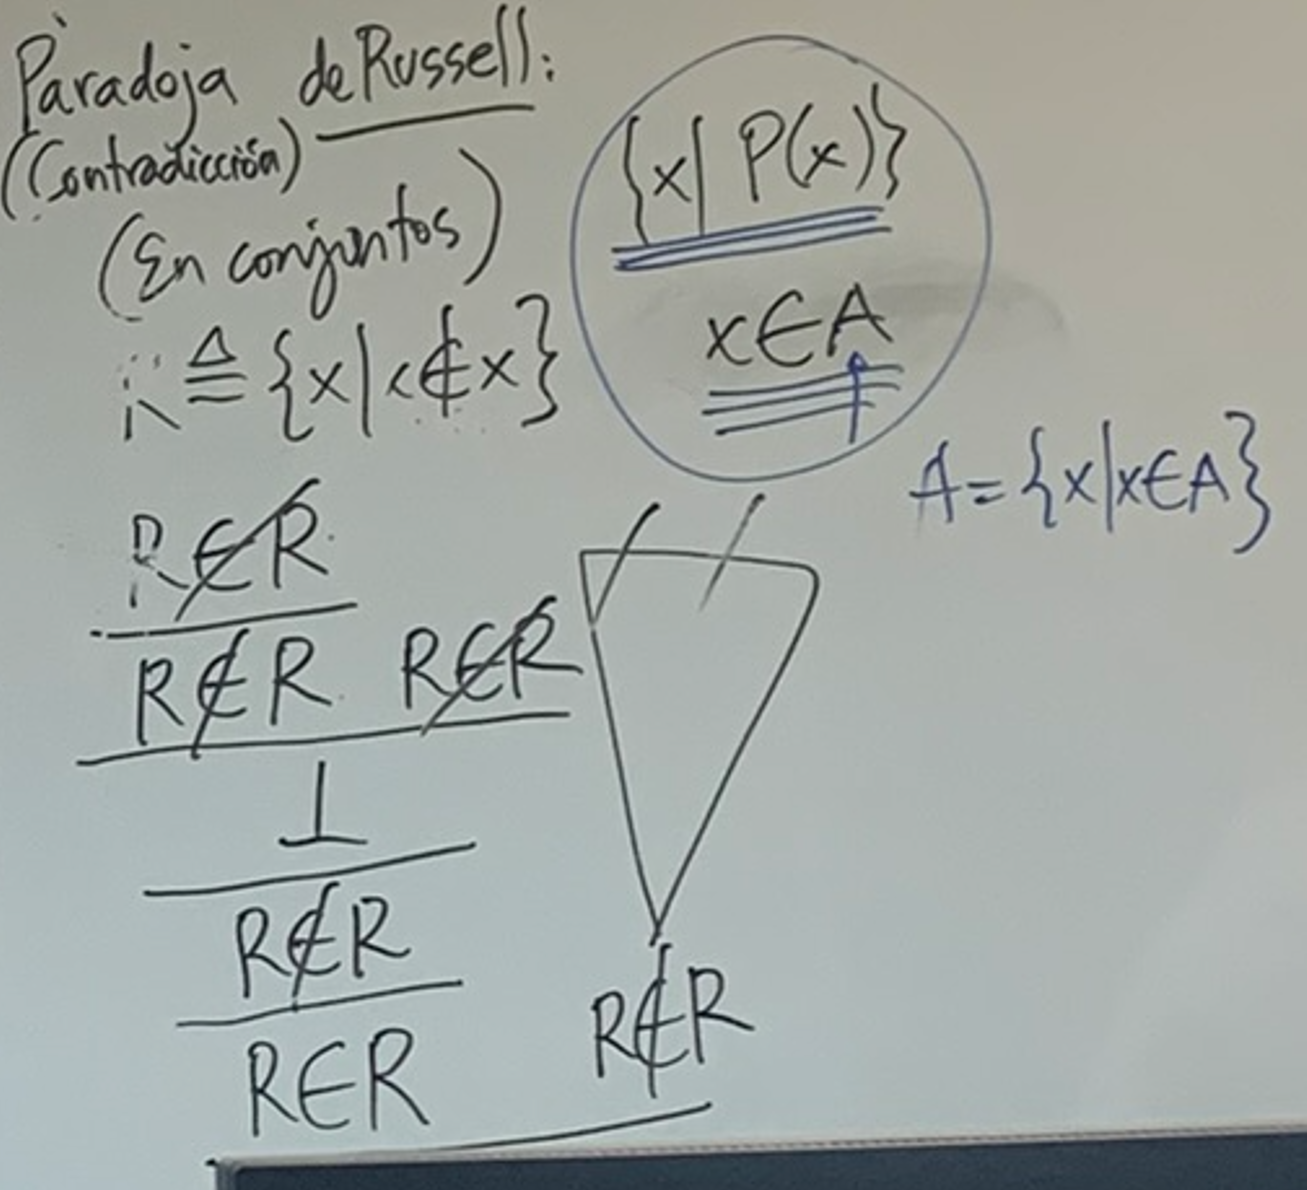 Paradoja de Russell:
(Contradicción)
(En conjuntos)
R ≜ {x | x ∉ x}
{x | P(x)}
x ∈ A
A = {x | x ∈ A}
R ∈ R
R ∉ R R ∈ R
⊥
R ∉ R
R ∈ R R ∉ R